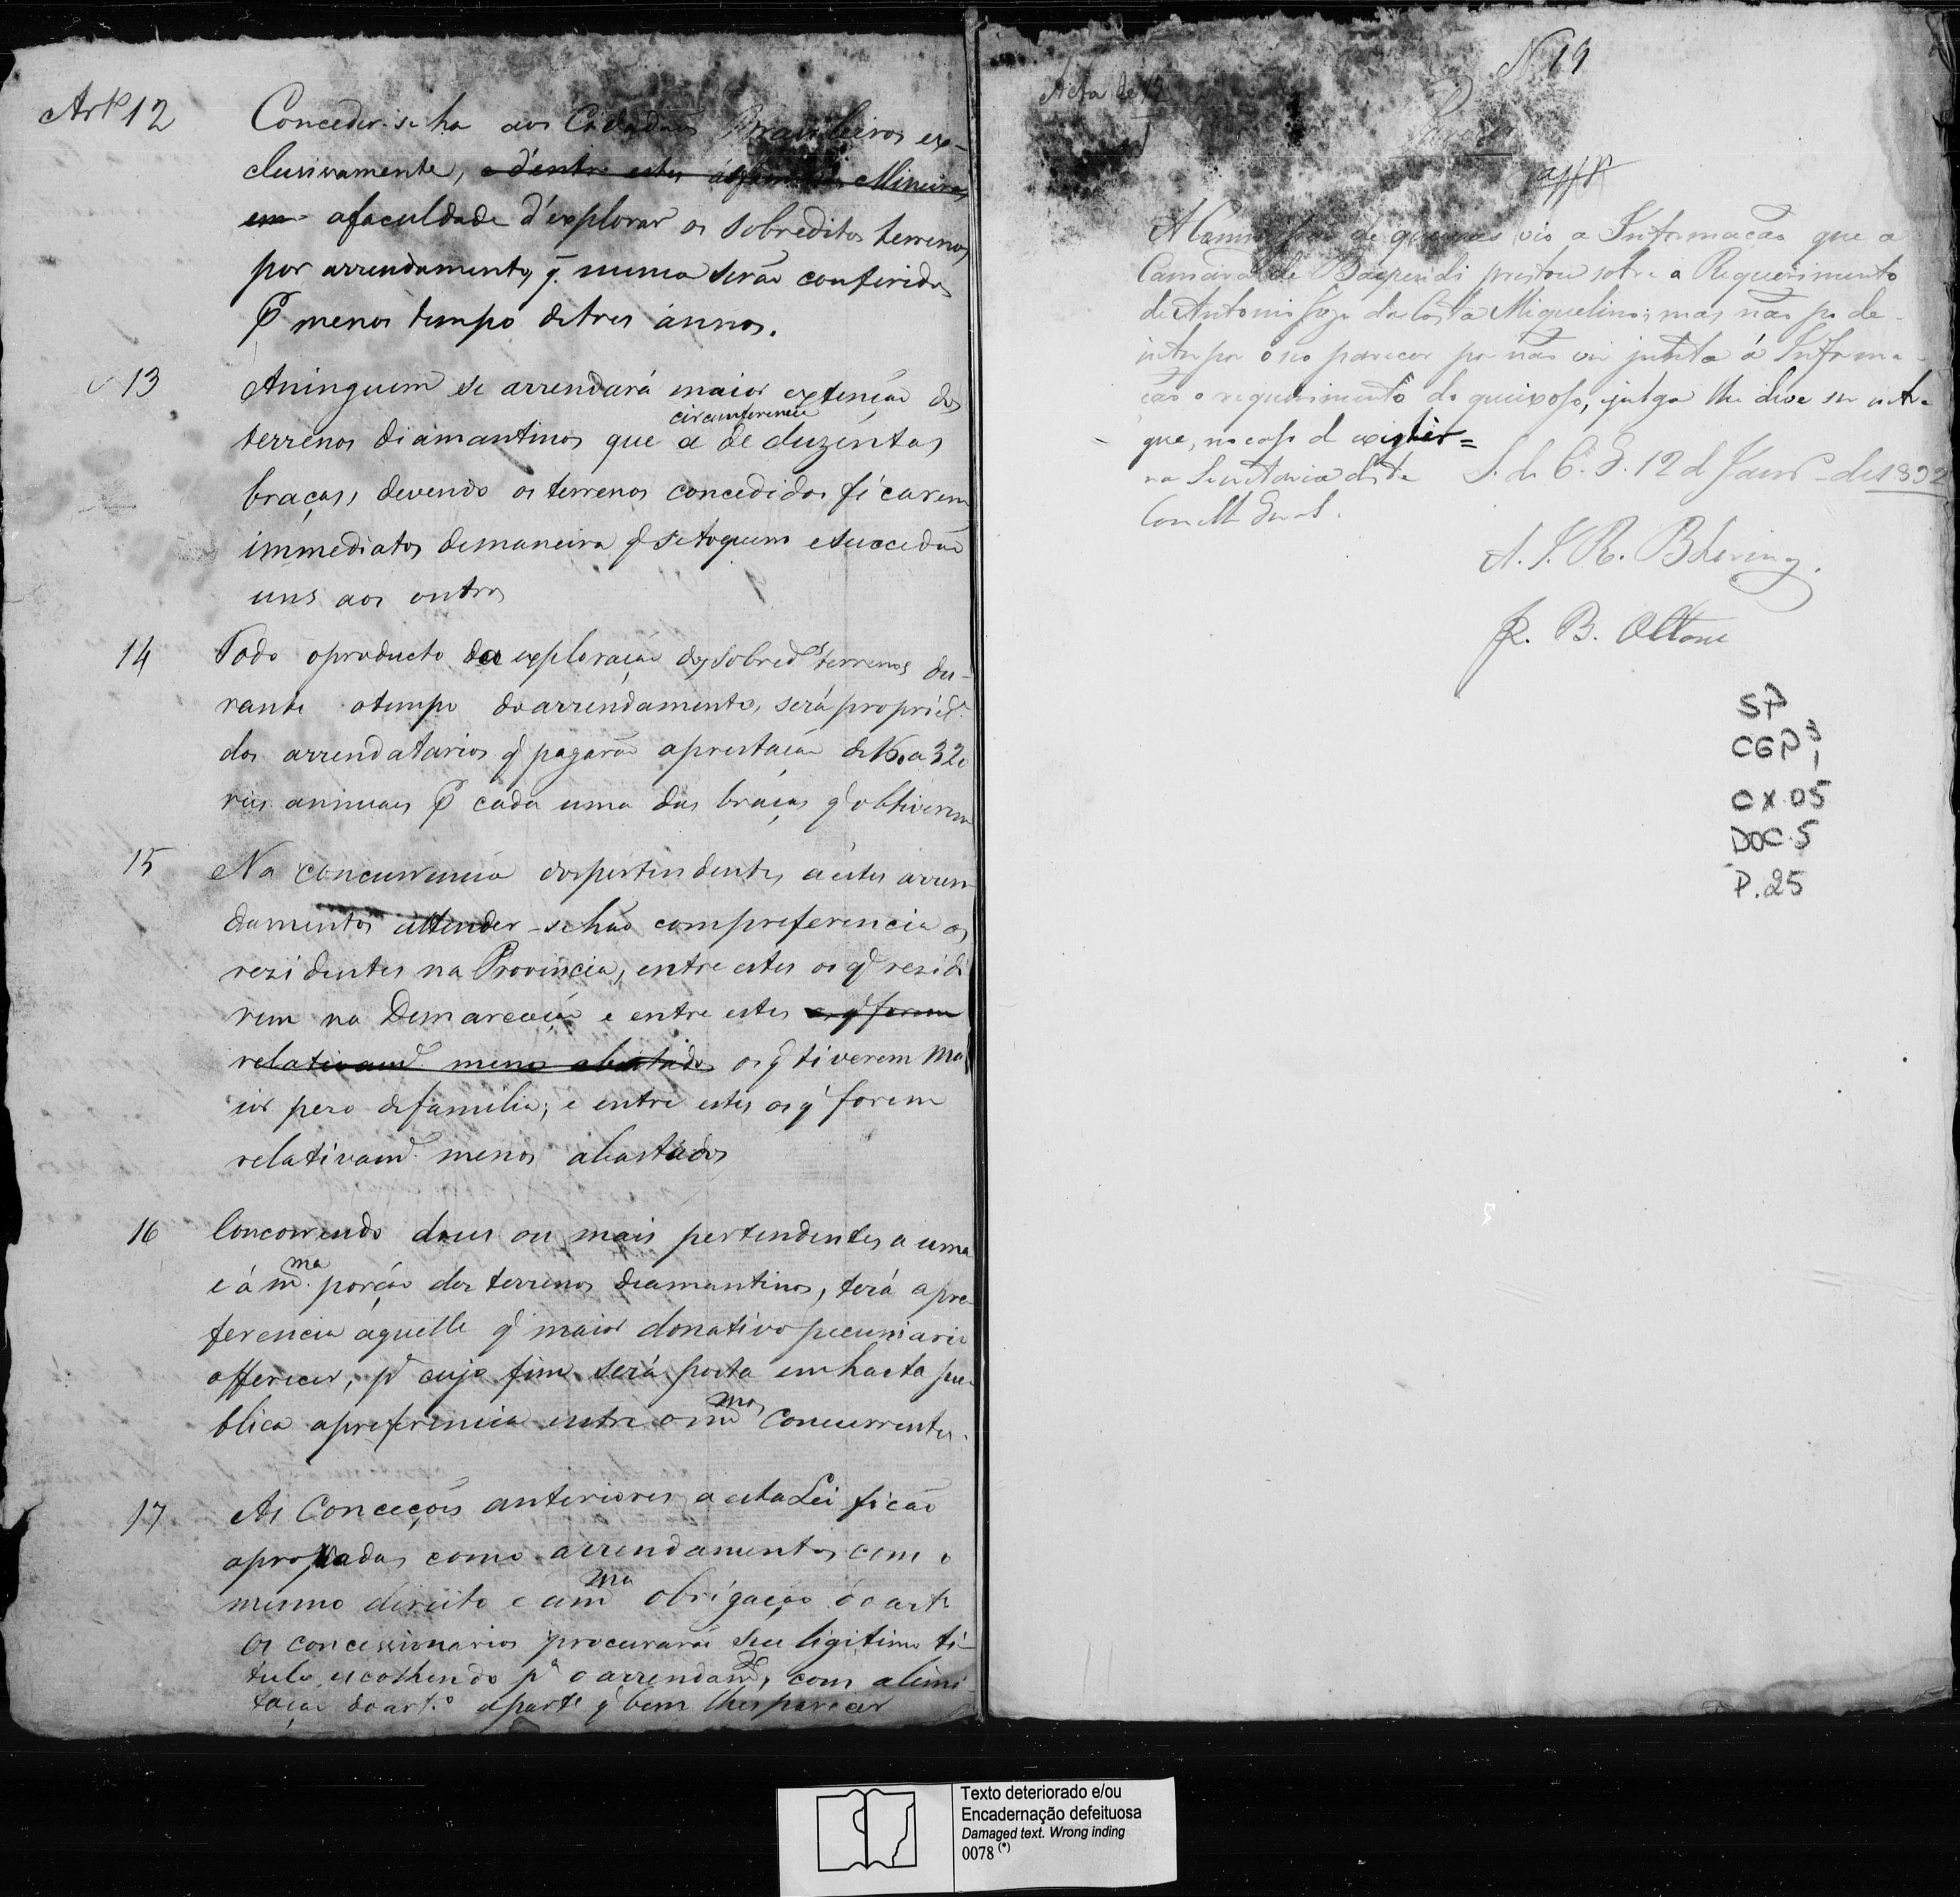 Art.º 12 Conceder-se ha aos Cidadãos Brasileiros ex-
clusivamente, e d'entre estes Mineiros
em a faculdade d'explorar os sobreditos terrenos
por arrendamento, q. nunca serão conferidos
P menos tempo de tres ánnos.
13 A ninguem se arrendará maior extenção dos
circunferencia
terrenos diamantinos que a de duzentas
braças, devendo os terrenos concedidos ficarem
immediatos de maneira q̃ se toquem e succedão
uns aos outros
14 Todo o producto da exploração dos sobred.os terrenos du-
rante o tempo do arrendamento, será propried.e
dos arrendatarios q̃ pagarão a prestação de 160 a 320
reis annuaes P cada uma das braças q̃ obtiverem
15 Na concurrencia dos pertendentes a estes arren-
damentos attender-se hão com preferencia os
rezidentes na Provincia, entre estes os q̃ rezidi
rem na Demarcação e entre estes os q̃ forem
relativam.e menos abastados os q̃ tiverem ma
ior pezo de familia; e entre estes os q̃ forem
relativam.e menos abastados
16 Concorrendo dous ou mais pertendentes a uma
e á m.ma porção dos terrenos diamantinos, terá a pre-
ferencia aquelle q̃ maior donativo pecuniario
offerecer, p.a cujo fim será posta em hasta pu-
blica a preferencia entre os m.mos concurrentes.
17 As Conceções anteriores a esta Lei ficão
aprovadas como arrendamentos com o
mesmo direito e a m.ma obrigação do art.o
Os concessionarios procurarão seu ligitimo ti-
tulo, escolhendo p.a o arrendam.to, com a limi
tação do art.o a parte q̃ bem lhes parecer
N 19
Acta de 12
Parecer
A Commissão de queixas vio a Informação que a
Camara de Baependi prestou sobre o Requerimento
de Antonio Joze da Costa Miquelino; mas não pode
interpor o seo parecer por não vir junto á Informa-
ção o requerimento do queixoso, e julga lhe deve ser entre
gue, no caso d existir =
na Secretaria deste
Cons.o Geral.
S. do C. G. 12 d Janr.o de 1832
A. J. R. Bhering.
J. B. Ottoni
SP
CGP 3
1
CX.05
DOC.5
P.25
Texto deteriorado e/ou
Encadernação defeituosa
Damaged text. Wrong inding
0078 (*)